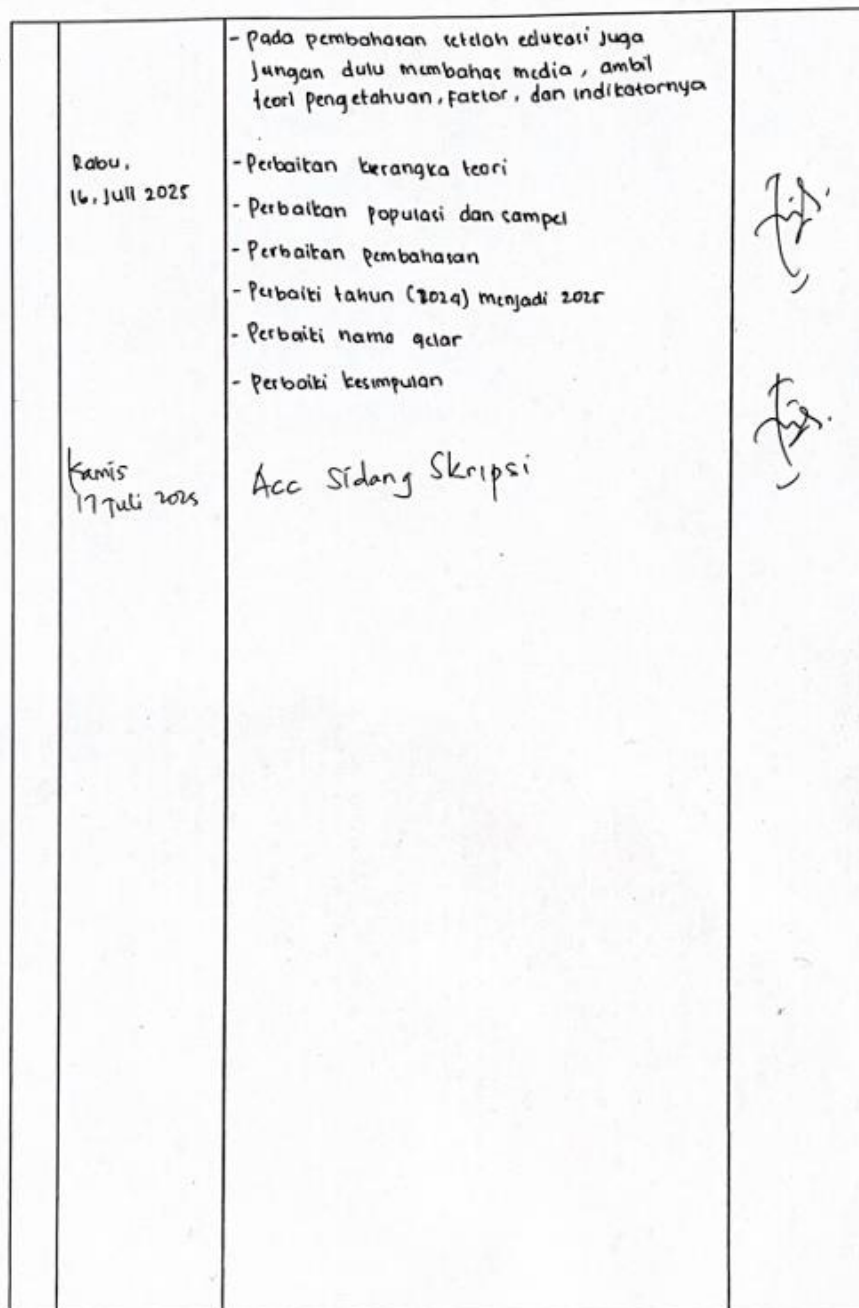 - Pada pembahasan setelah edukasi juga
jangan dulu membahas media, ambil
teori pengetahuan, faktor, dan indikatornya
Rabu,
16, Juli 2025
- Perbaikan kerangka teori
- Perbaikan populasi dan sampel
- Perbaikan pembahasan
- Perbaiki tahun (2024) menjadi 2025
- Perbaiki nama gelar
- Perbaiki kesimpulan
Kamis
17 Juli 2025
Acc Sidang Skripsi